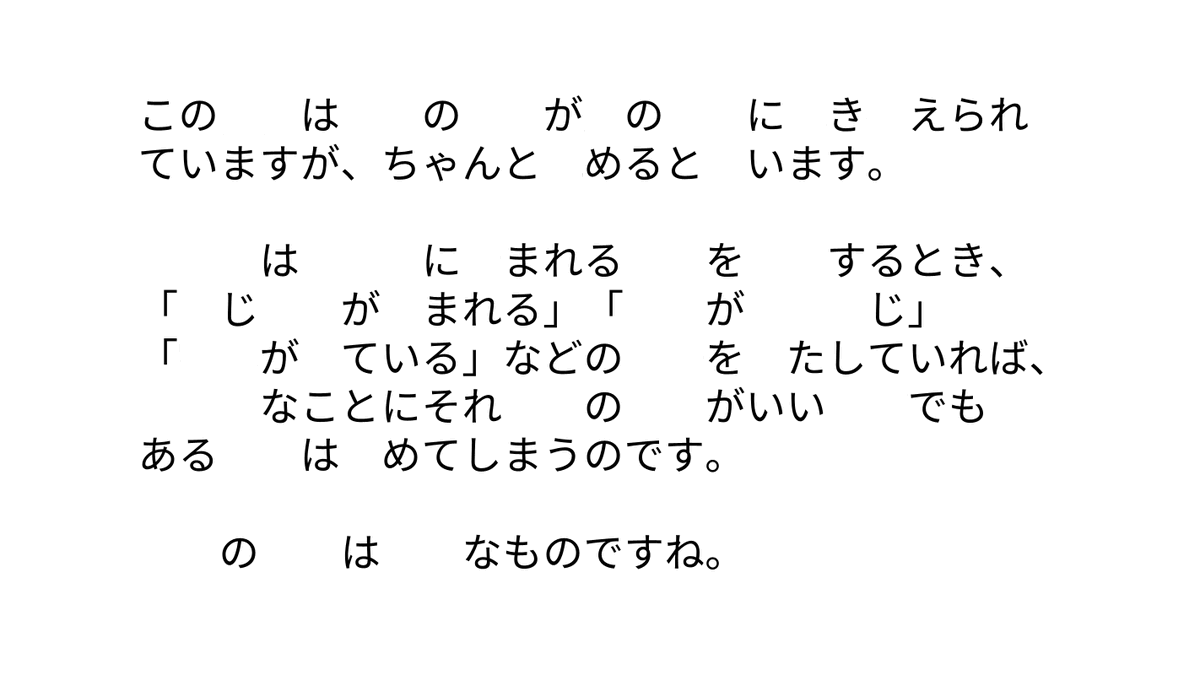 この　　は　　の　　が　の　　に　き　えられ
ていますが、ちゃんと　めると　います。
　　　は　　　に　まれる　　を　　するとき、
「　じ　　が　まれる」「　　が　　　じ」
「　　が　ている」などの　　を　たしていれば、
　　　なことにそれ　　の　　がいい　　でも
ある　　は　めてしまうのです。
　　の　　は　　なものですね。